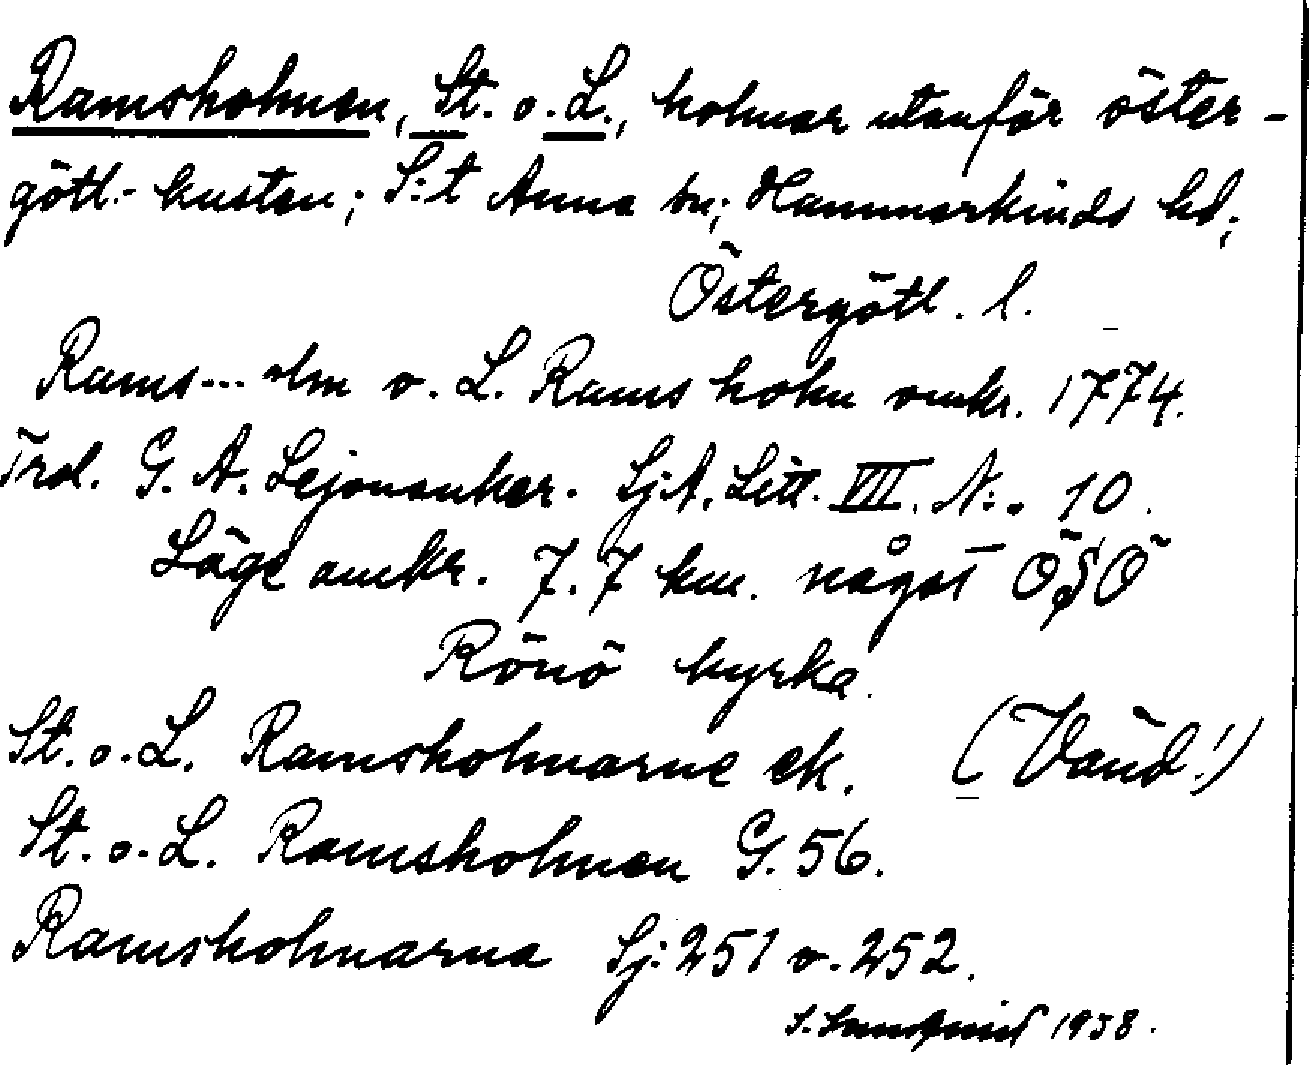 Ramsholmen, St. o. L., holmar utanför öster-
götl.-kusten; S:t Anna sn; Hammarkinds hd;
Östergötl. l.
Rams... olm o. L. Ramsholm omkr. 1774.
Trol. G. A. Lejonanker. Sj.A. Litt. VIII. N:. 10.
Läge omkr. 7.7 km. något ÖSÖ
Rönö kyrka.
St. o. L. Ramsholmarne ek. (Vänd!)
St. o. L. Ramsholmen G. 56.
Ramsholmarna Sj: 251 o. 252.
1938.